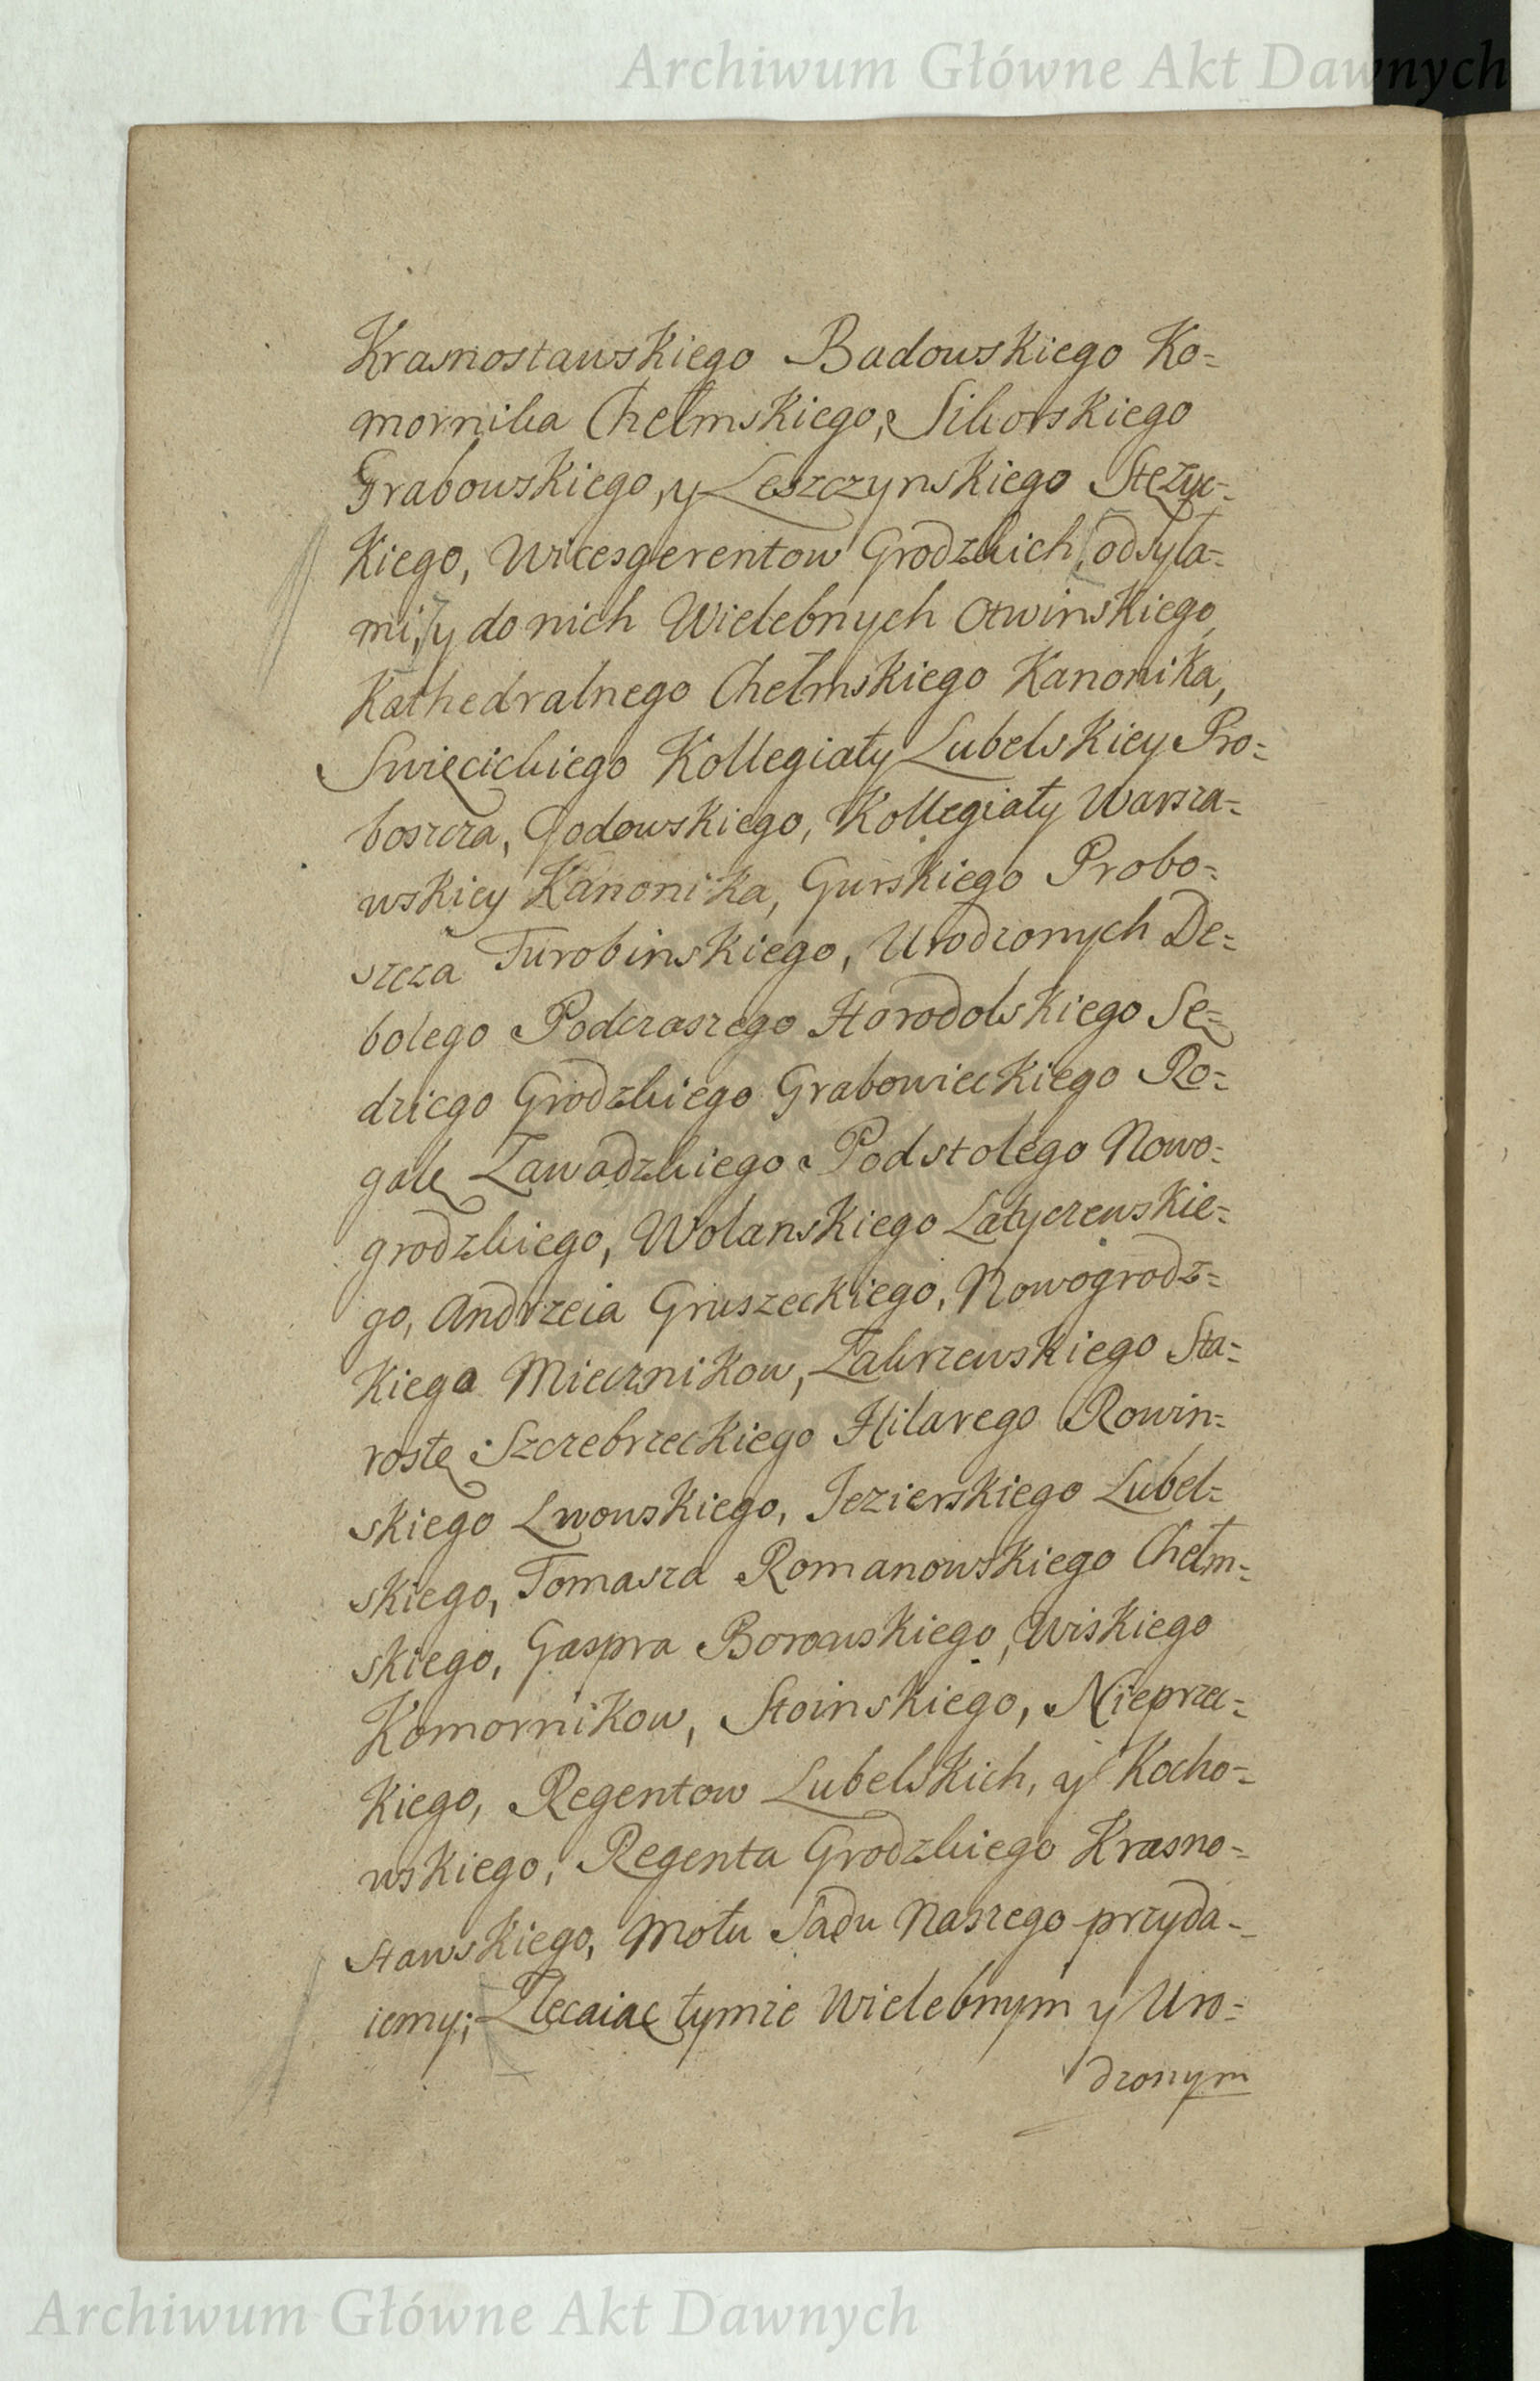 Archiwum Główne Akt Dawnych
Krasnostawskiego Badowskiego Ko=
mornika Chełmskiego, Sikorskiego
Grabowskiego, y Leszczynskiego Stęzyc=
kiego, Wicesgerentow Grodzkich, odsyła=
mi, y do nich Wielebnych Otwinskiego,
Kathedralnego Chełmskiego Kanonika,
Swięcickiego Kollegiaty Lubelskiey Pro=
boszcza, Godowskiego, Kollegiaty Warsza=
wskiey Kanonika, Gurskiego Probo=
szcza Turobinskiego, Urodzonych De=
bolego Podczaszego Horodolskiego Sę=
dziego Grodzkiego Grabowieckiego Ro=
galę Zawadzkiego Podstolego Nowo=
grodzkiego, Wolanskiego Latyczewskie=
go, Andrzeia Gruszeckiego, Nowogrodz=
kiego Miecznikow, Zakrzewskiego Sta=
rostę Szczebrzeckiego Hilarego Rowin=
skiego Lwowskiego, Jezierskiego Lubel=
skiego, Tomasza Romanowskiego Chełm=
skiego, Gaspra Borowskiego, Wiskiego
Komornikow, Stoinskiego, Nieprzec=
kiego, Regentow Lubelskich, y Kocho=
wskiego, Regenta Grodzkiego Krasno=
stawskiego, Motu Sądu Naszego przyda=
iemy; Zlecaiąc tymże Wielebnym y Uro=
dzonym
Archiwum Główne Akt Dawnych